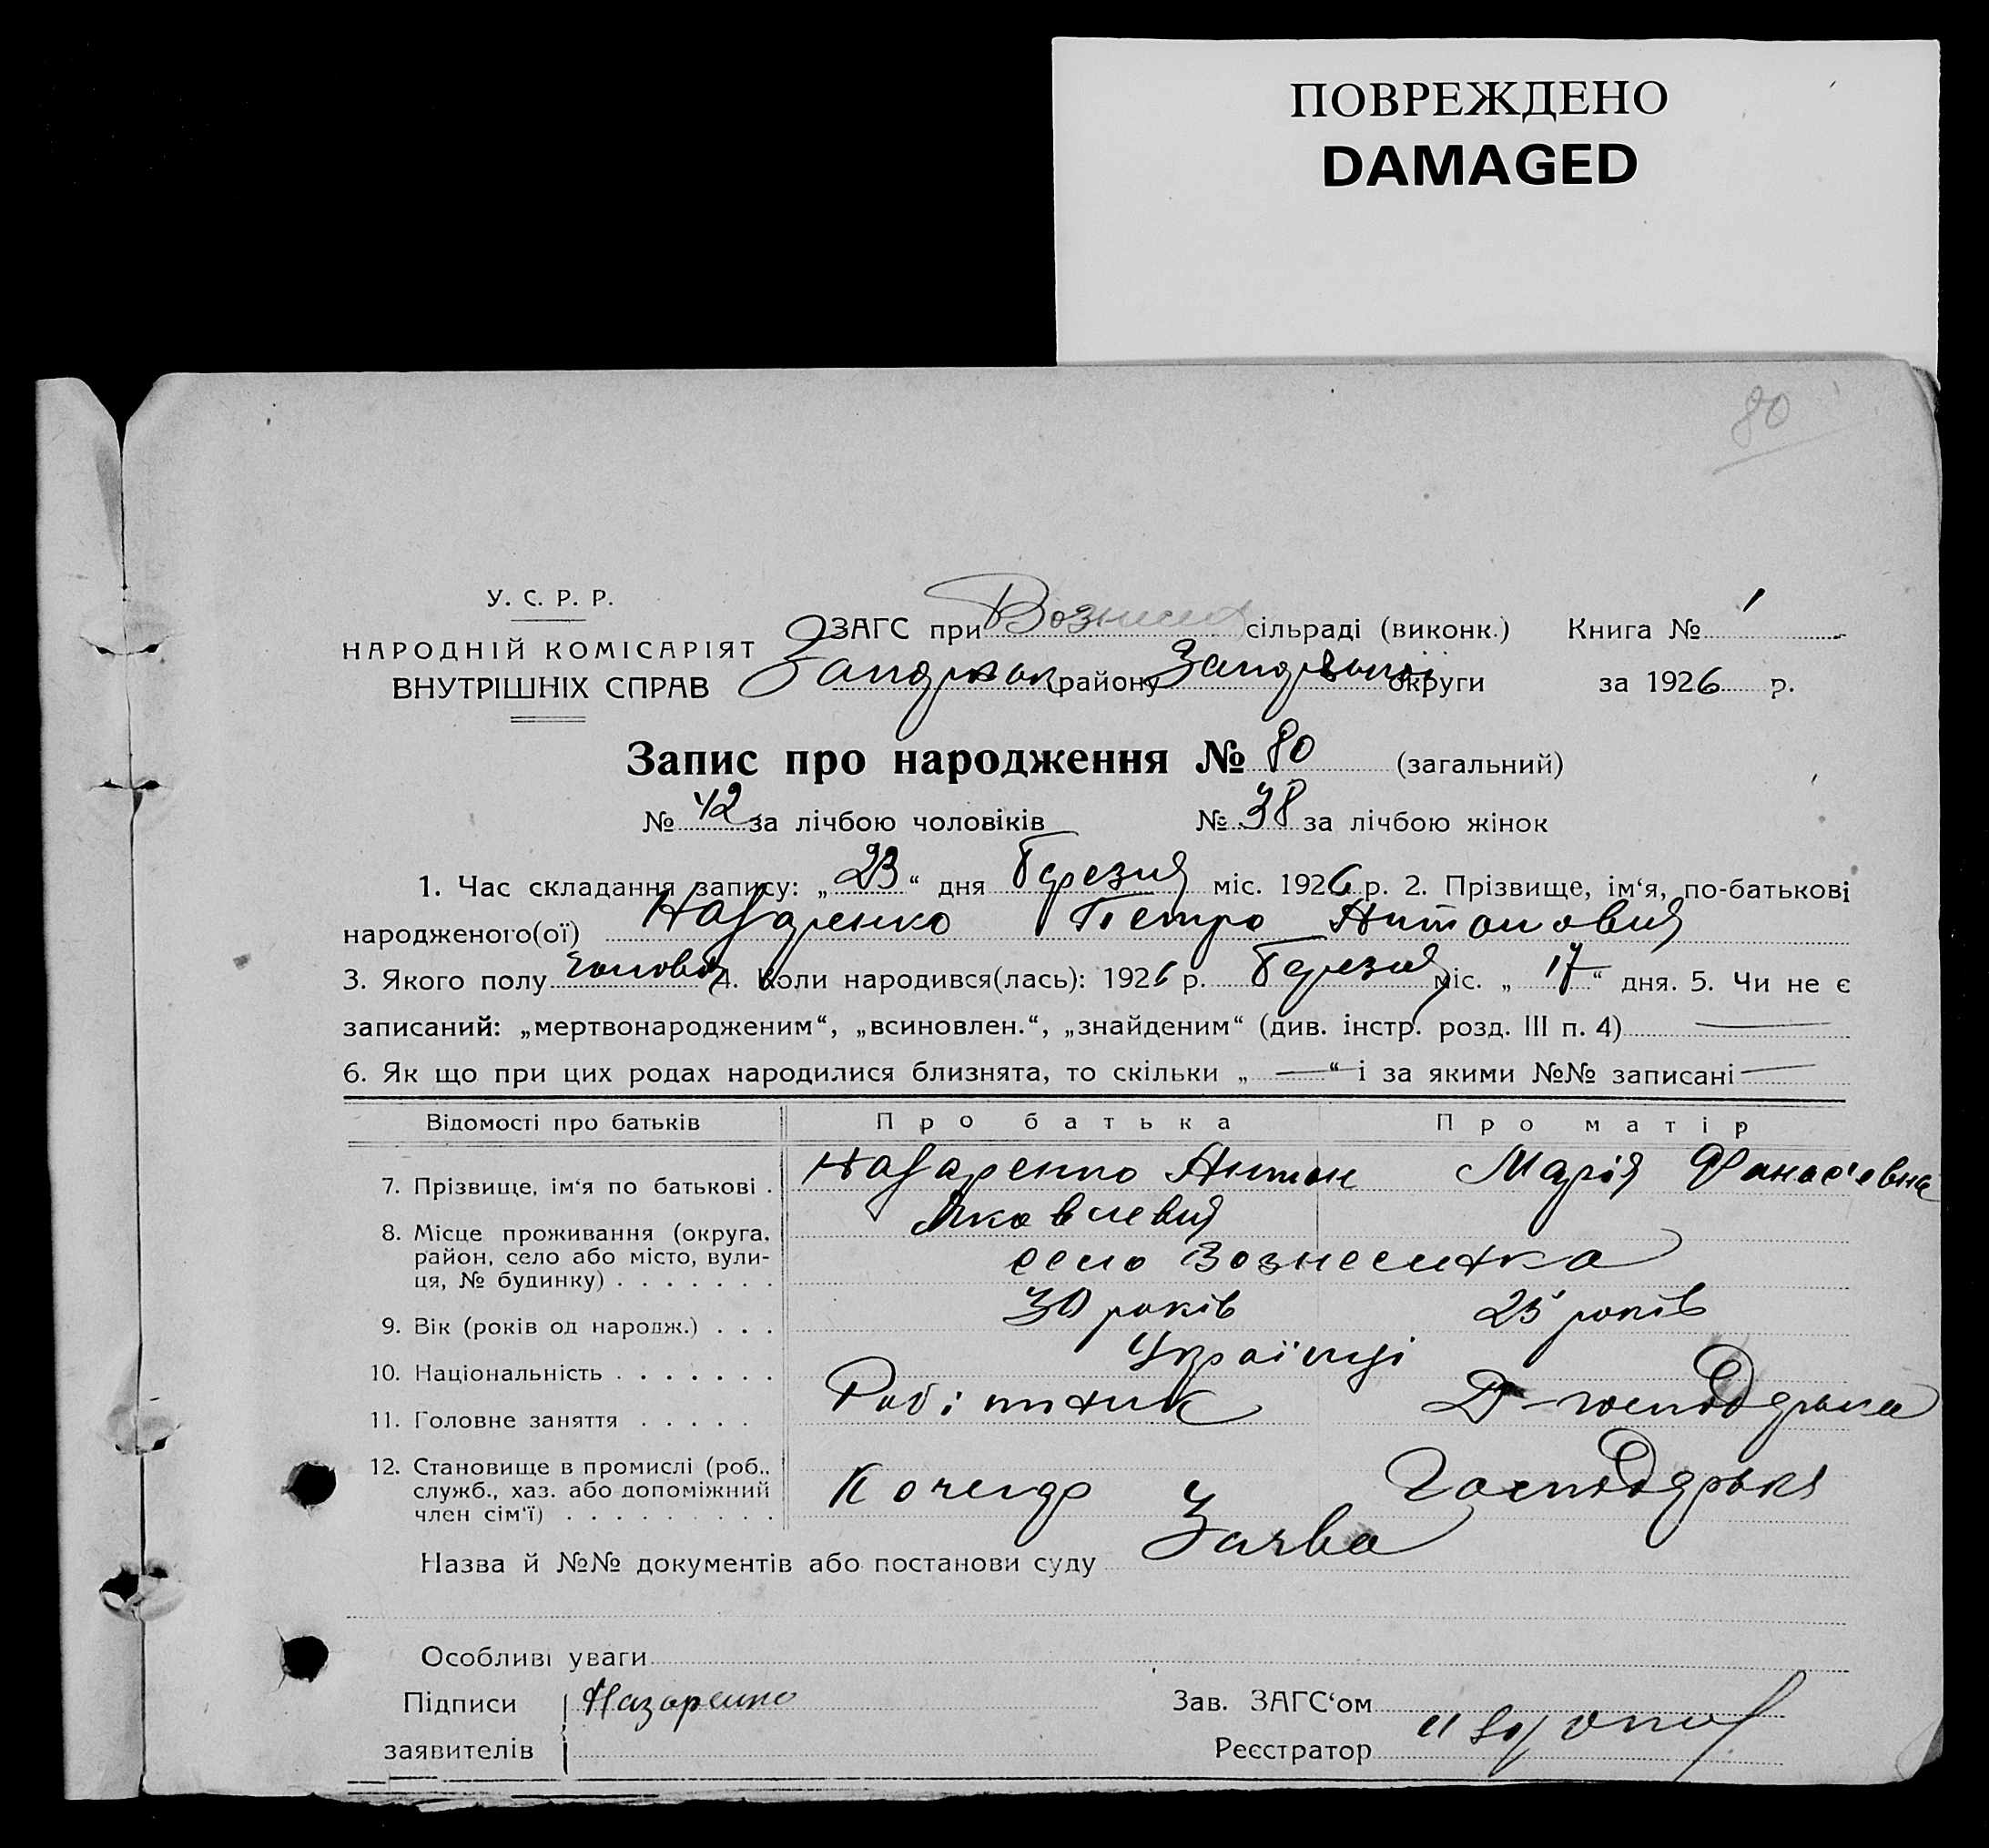 ПОВРЕЖДЕНО
DAMAGED
80
У. С. Р. Р.
НАРОДНІЙ КОМІСАРІЯТ
ВНУТРІШНІХ СПРАВ
ЗАГС при Вознесен сільраді (виконк.) Книга № 1
району округи за 1926 р.
Запис про народження № 80 (загальний)
№ 42 за лічбою чоловіків № 38 за лічбою жінок
1. Час складання запису: „23“ дня Березня міс. 1926 р. 2. Прізвище, ім‘я, по-батькові
народженого(ої) Назаренко Петро Антонович
3. Якого полу чоловіч 4. Коли народився(лась): 1926 р. Березня міс. „17“ дня. 5. Чи не є
записаний: „мертвонародженим“, „всиновлен.“, „знайденим“ (див. інстр. розд. III п. 4) —
6. Як що при цих родах народилися близнята, то скільки „—“ і за якими №№ записані —
Відомості про батьків Про батька Про матір
7. Прізвище, ім‘я по батькові . Назаренко Антон Марія Фанас'евна
Яковлевич
8. Місце проживання (округа, район, село або місто, вули-ця, № будинку) . . . . . . . село Вознесенка
9. Вік (років од народж.) . . . 30 років 25 років
10. Національність . . . . . . . Українці
11. Головне заняття . . . . . Робітник Д-господарька
12. Становище в промислі (роб., служб., хаз. або допоміжний член сім‘ї) . . . . . . . . . Кочегар Господарька
Назва й №№ документів або постанови суду Заява
Особливі уваги
Підписи Назаренко Зав. ЗАГС‘ом
заявителів Реєстратор